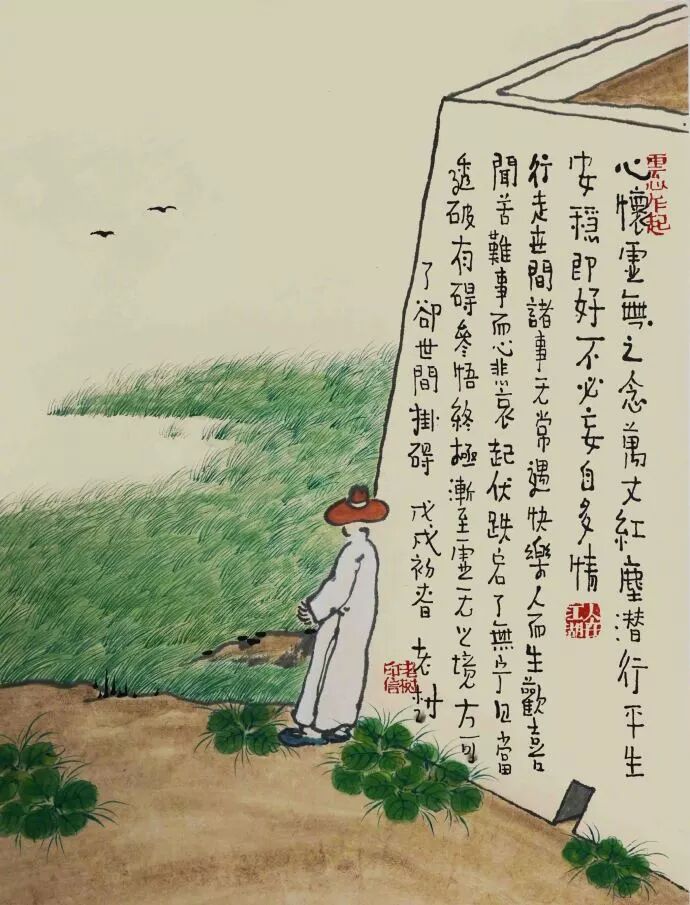 心懷虛無之念萬丈紅塵潜行平生
安穩即好不必妄自多情
行走世間諸事无常遇快樂人而生歡喜
聞苦難事而心悲哀起伏跌宕了無宁日當
透破有碍參悟終極漸至虛无之境方可
了卻世間掛碍
戊戌初春 老树
人在江湖
老樹印信